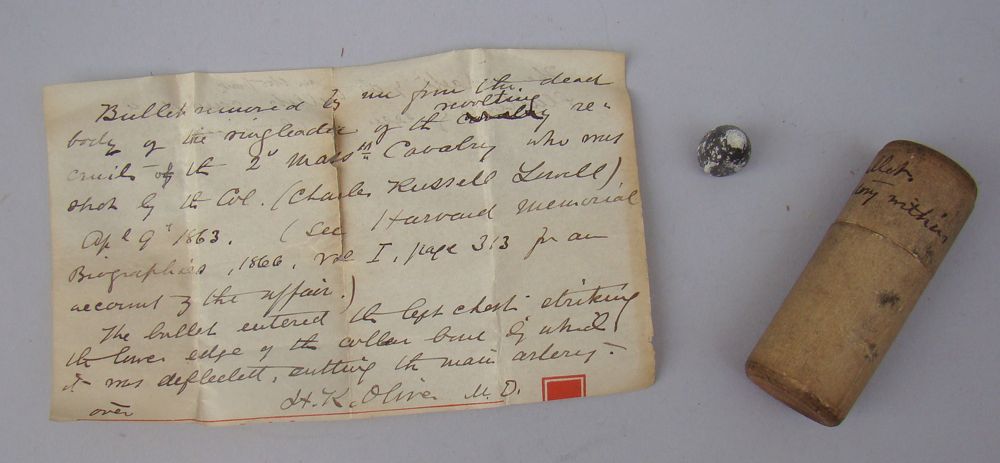 Bullet removed by me from the dead
body of the ringleader of the revolting re-
cruits of the 2d Mass Cavalry who was
shot by the Col. (Charles Russell Lowell)
Apl 9th 1863. (See Harvard Memorial
Biographies, 1866, vol I, page 313 for an
account of the affair.)
The bullet entered the left chest striking
the lower edge of the collar bone by which
it was deflected, cutting the main artery.
H. K. Oliver M. D.
over
llet.
ory within